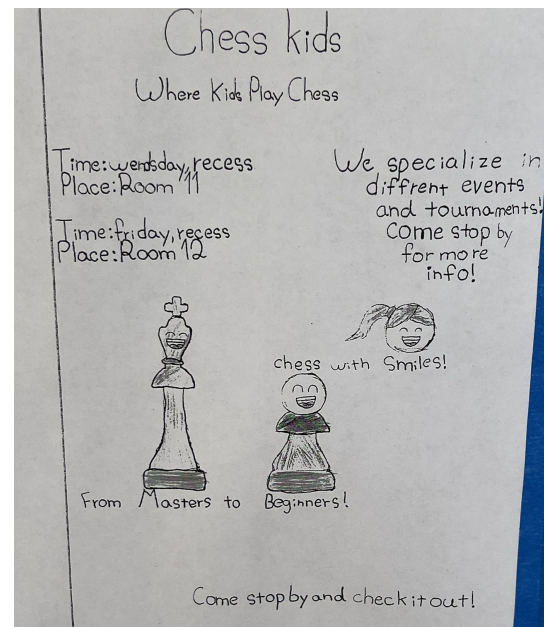 Chess kids
Where Kids Play Chess
Time:wendsday,recess
Place:Room 11
Time:friday,recess
Place:Room 12
We specialize in
diffrent events
and tournaments!
Come stop by
for more
info!
chess with Smiles!
From Masters to Beginners!
Come stop by and check it out!